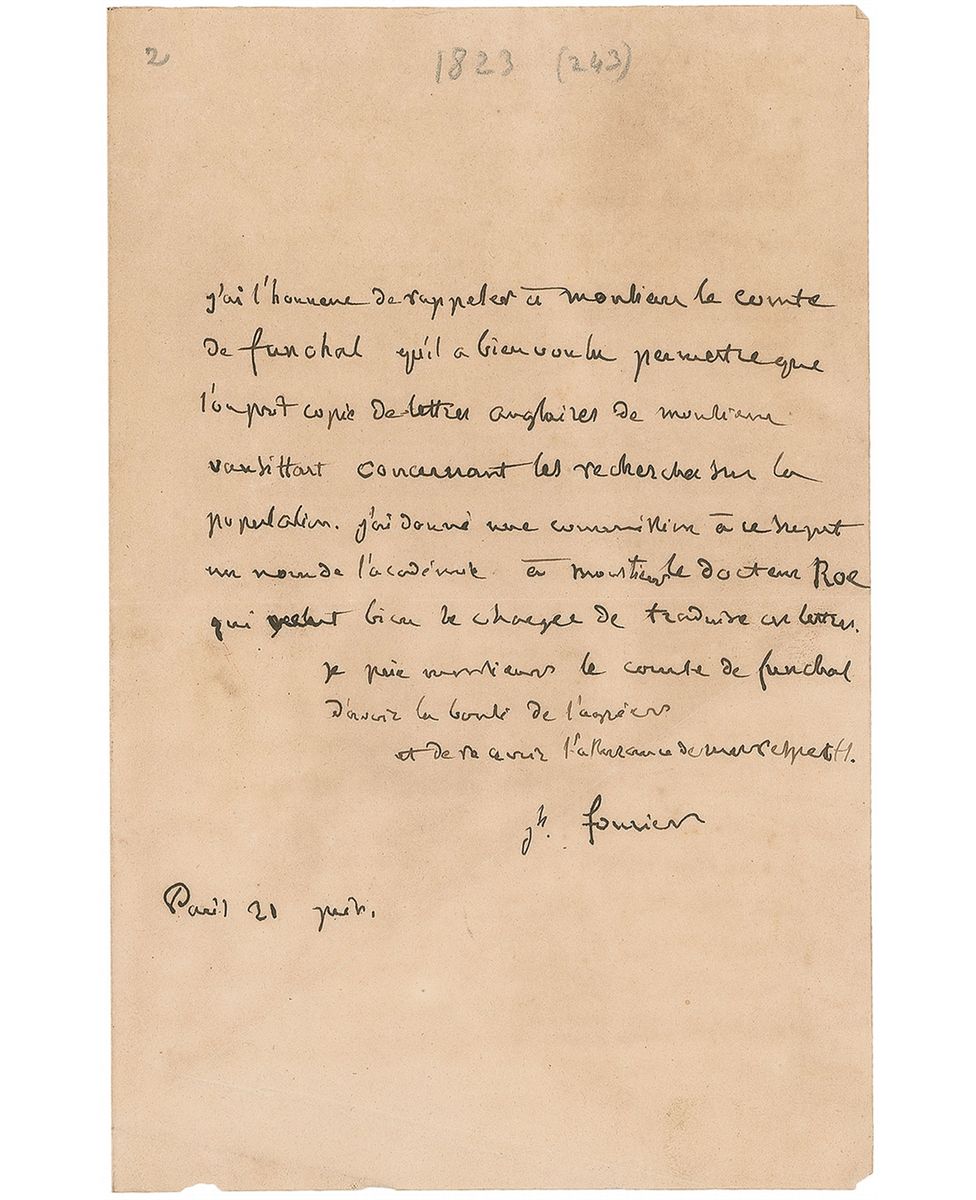 2 1823 (243)
j'ai l'honneur de rappeler à monsieur le comte
de funchal qu'il a bien voulu permettre que
l'on prit copie de lettres anglaises de monsieur
vansittart concernant les recherches sur la
population. j'ai donné une commission à ce sujet
au nom de l'académie à monsieur le docteur Roe
qui veut bien se charger de traduire ces lettres.
je prie monsieur le comte de funchal
d'avoir la bonté de l'agréer
et de recevoir l'assurance de mon respect.
jh. fourier
Paris 21